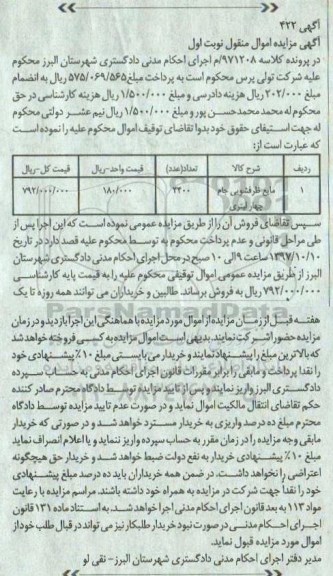 آگهی ۴۲۲
آگهی مزایده اموال منقول نوبت اول
در پرونده کلاسه ۹۷۱۲۰۸/م اجرای احکام مدنی دادگستری شهرستان البرز محکوم
علیه شرکت تولی پرس محکوم است به پرداخت مبلغ ۵۷۵/۰۶۹/۵۶۵ ریال به انضمام
مبلغ ۲۰۲/۰۰۰ ریال هزینه دادرسی و مبلغ ۱/۵۰۰/۰۰۰ ریال هزینه کارشناسی در حق
محکوم له محمد محمدحسن پور و مبلغ ۱/۵۰۰/۰۰۰ ریال نیم عشر دولتی محکوم
له جهت استیفای حقوق خود بدوا تقاضای توقیف اموال محکوم علیه را نموده است
که عبارت است از:
ردیف شرح کالا تعداد(عدد) قیمت واحد-ریال قیمت کل-ریال
۱ مایع ظرفشویی جام ۴۴۰۰ ۱۸۰/۰۰۰ ۷۹۲/۰۰۰/۰۰۰
چهار لیتری
سپس تقاضای فروش آن را از طریق مزایده عمومی نموده است که این اجرا پس از
طی مراحل قانونی و عدم پرداخت محکوم به توسط محکوم علیه قصد دارد در تاریخ
۱۳۹۷/۱۰/۱۰ ساعت ۹ الی ۱۰ صبح در محل اجرای احکام مدنی دادگستری شهرستان
البرز از طریق مزایده عمومی اموال توقیفی محکوم علیه را به قیمت پایه کارشناسی
۷۹۲/۰۰۰/۰۰۰ ریال به فروش برساند. طالبین و خریداران می توانند همه روزه تا یک
هفته قبل از زمان مزایده از اموال مورد مزایده با هماهنگی این اجرا بازدید و در زمان
مزایده حضور/شرکت نمایند. بدیهی است اموال مزایده به کسی فروخته خواهد شد
که بالاترین مبلغ را پیشنهاد نمایند و خریدار می بایستی مبلغ ۱۰٪ پیشنهادی خود
را نقدا پرداخت و مابقی را برابر مقررات قانون اجرای احکام مدنی به حساب سپرده
دادگستری البرز واریز نمایند و پس از تایید مزایده توسط دادگاه محترم صادر کننده
حکم تقاضای انتقال مالکیت اموال نماید و در صورت عدم تایید مزایده توسط دادگاه
محترم مبلغ ده درصد واریزی به خریدار مسترد خواهد شد و در صورتی که خریدار
مابقی وجه مزایده را در زمان مقرر به حساب سپرده واریز ننماید و یا اعلام انصراف نماید
مبلغ ۱۰٪ پیشنهادی خریدار به نفع دولت ضبط خواهد شد و خریدار حق هیچگونه
اعتراضی را نخواهد داشت. در ضمن همه خریداران باید ده درصد مبلغ پیشنهادی
خود را نقدا جهت شرکت در مزایده به همراه خود داشته باشند. مراسم مزایده با رعایت
مواد ۱۱۳ به بعد قانون اجرای احکام مدنی اجرا خواهد شد. به استناد ماده ۱۳۱ قانون
اجرای احکام مدنی در صورت نبود خریدار طلبکار نیز می تواند در قبال طلب خود از
اموال مورد مزایده قبول نماید.
مدیر دفتر اجرای احکام مدنی دادگستری شهرستان البرز- تقی لو